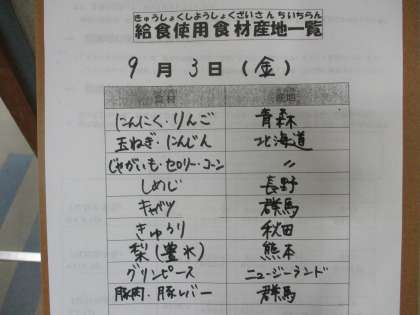 きゅうしょくしようしょくざいさんちいちらん
給食使用食材産地一覧
9月3日(金)
食材 産地
にんにく・りんご 青森
玉ねぎ・にんじん 北海道
じゃがいも・セロリー・コーン 〃
しめじ 長野
キャベツ 群馬
きゅうり 秋田
梨(豊水) 熊本
グリンピース ニュージーランド
豚肉・豚レバー 群馬